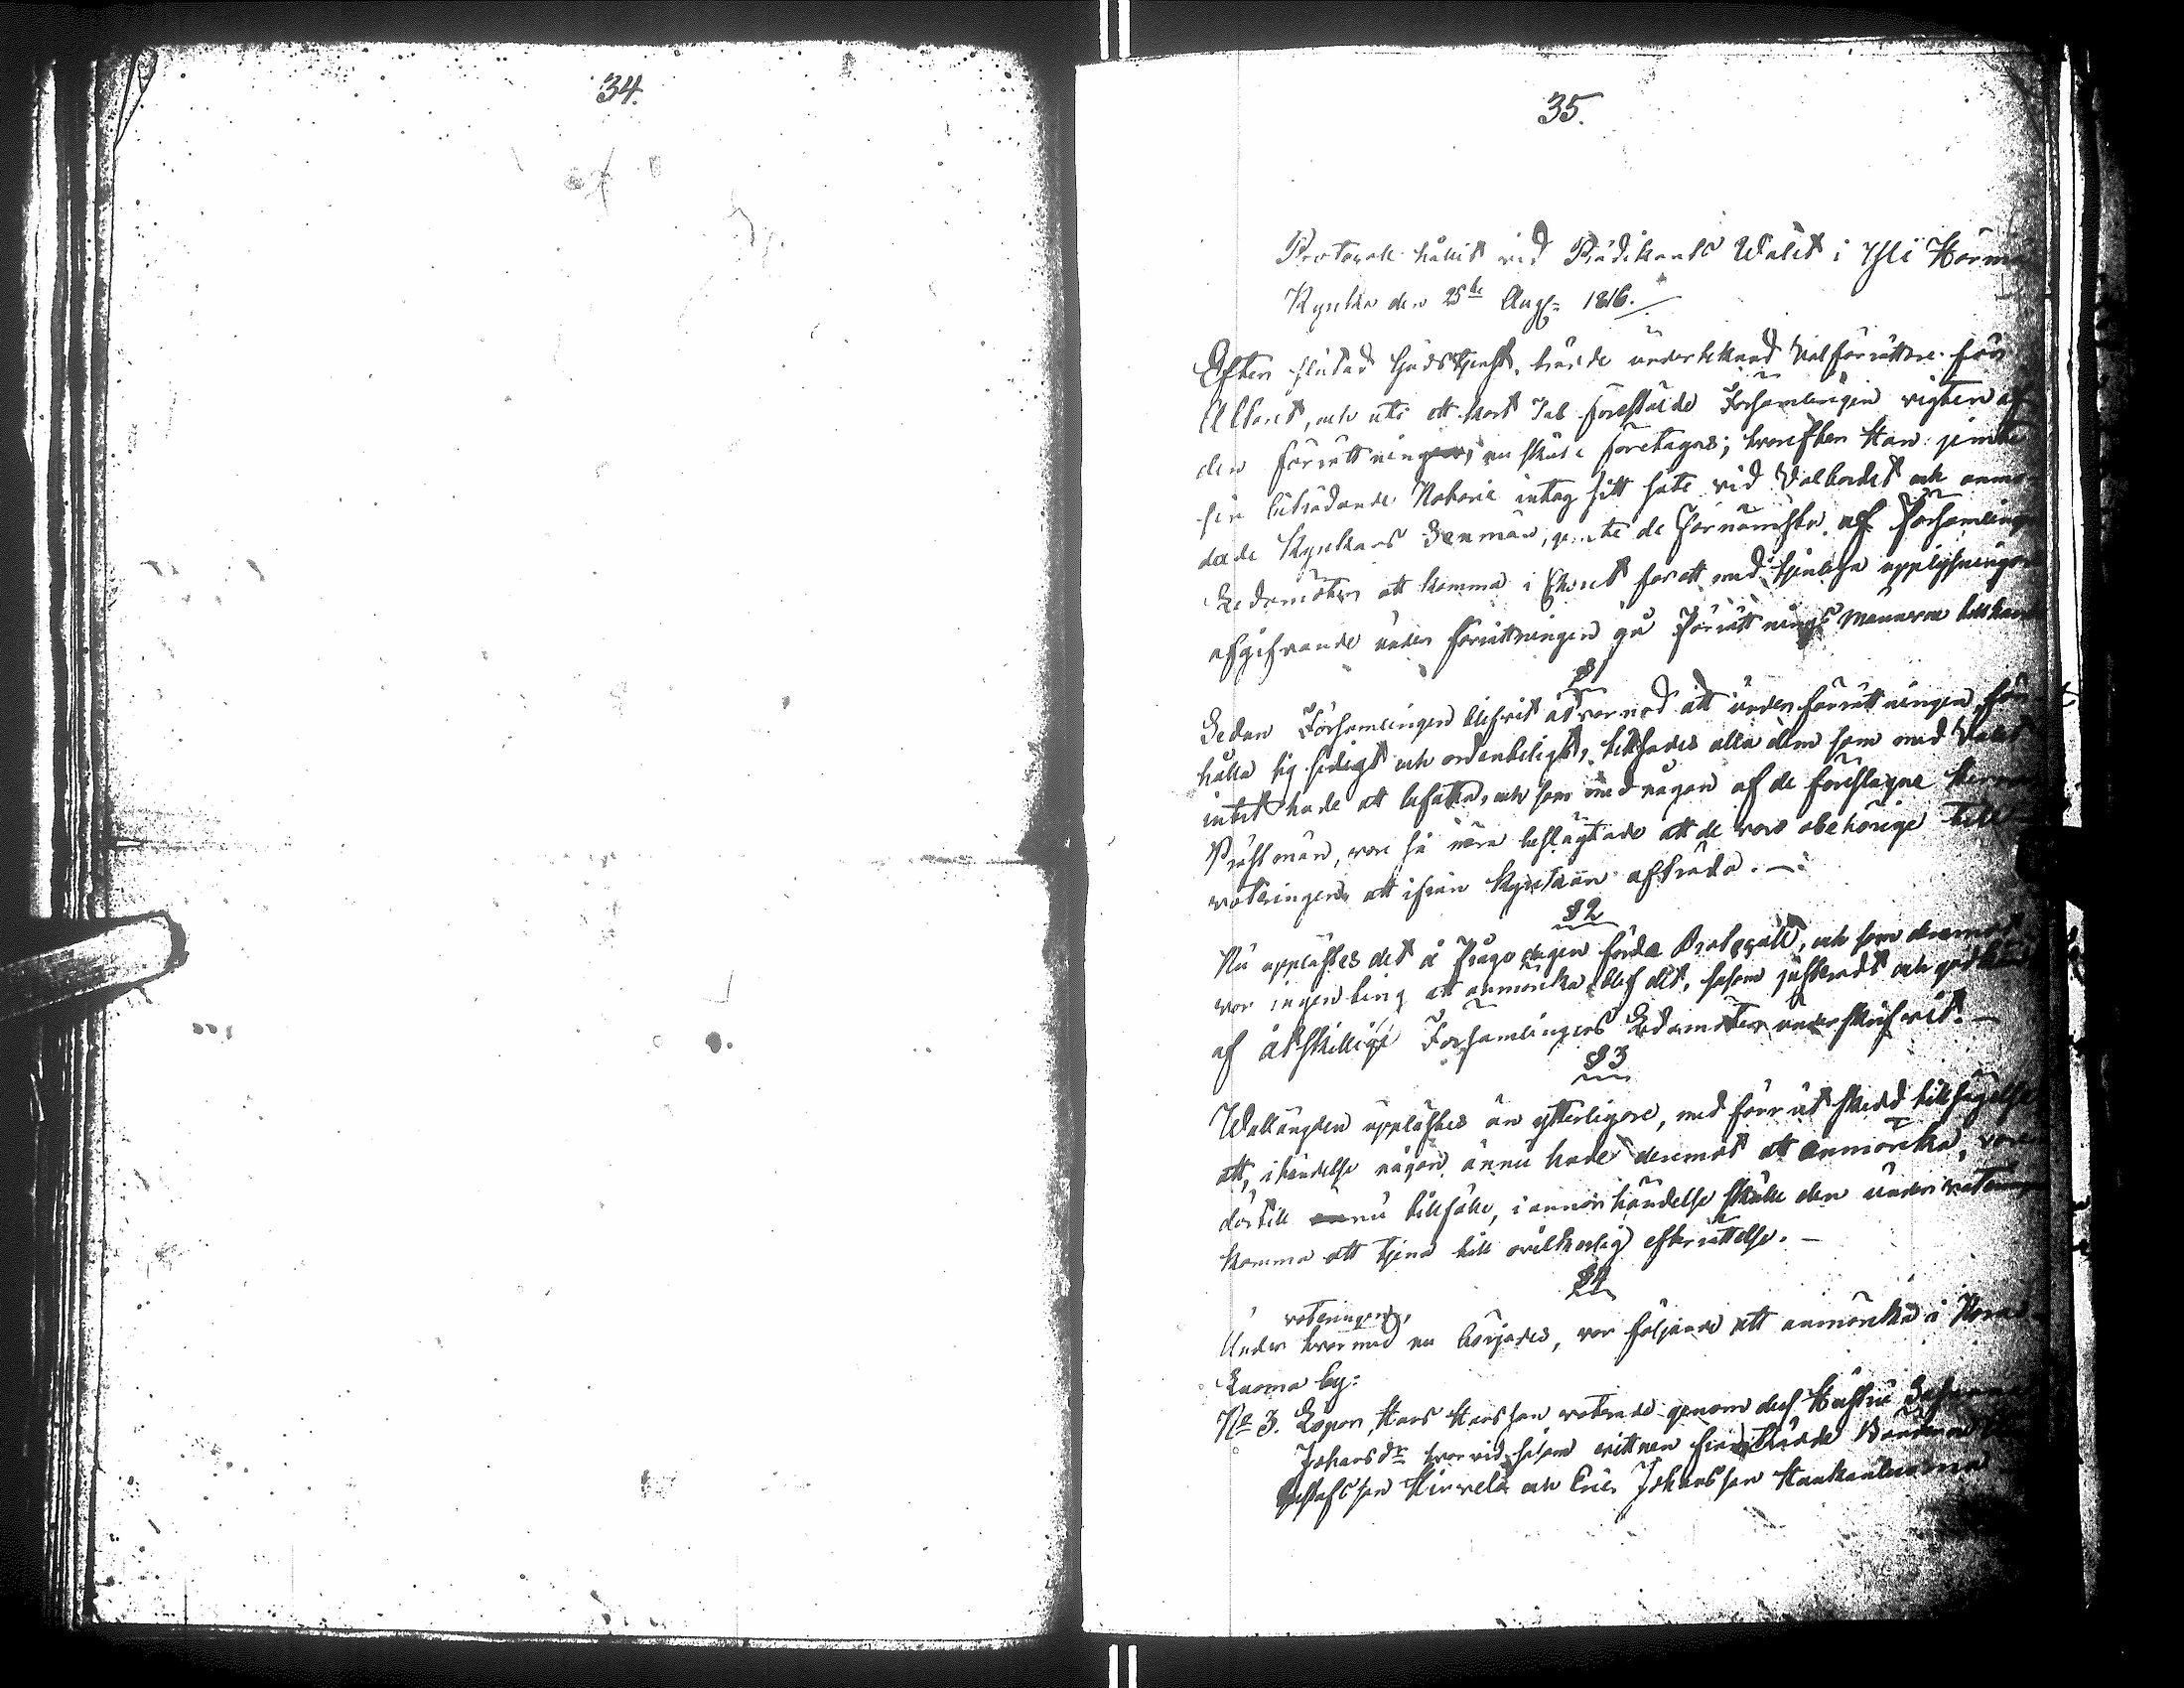 34.
35.
Protocoll hållit vid Prädikants Walet i Ylikärmä
Kyrka den 25te Augs: 1816.
Efter slutad Gudstjenst, trädde undertecknad Valförrättare för
Altaret, och uti ett kort Tal förestälde Församlingen vigten af
den förrättning nu skulle företagas; hvarefter Han jemte
sin biträdande Notarie intog sitt säte vid Valbordet och anmo-
dade Kyrkans Sexmän, jemte de förnämsta af Församlings
Ledamöter att komma i Choret för att med tjenliga upplysningars
afgifvande under förrättningen gå Förrättnings Mannen tillhanda
§ 1
Sedan Församlingen blifvit åtvarnad att under förrättningen för-
hålla sig sedigt och ordenteligt, tillsades alla dem som med Valet
intet hade att befatta, och som med någon af de föreslagne Herrar
Prästmän, voro så nära beslägtade att de voro obehörige till
voteringen, att ifrån Kyrkan afträda. —
§ 2
Nu upplästes det å Frågodagen förda Protocoll, och som deremot
var ingenting att anmärka, blef det, såsom justeradt och godkändt
af åtskillige Församlingens Ledamöter underskrifvit. —
§ 3
Wallängden upplästes än ytterligare, med förut skedd tillsägelse
att, i händelse någon ännu hade deremot att anmärka, vore
dertill nu tillfälle, i annor händelse skulle den under voteringen
komma att tjena till ovilkorlig efterrättelse. —
§ 4
voteringen,
Under hvarmed nu börjades, var följande att anmärka i
Luoma by:
No 3. Hans Hansson voterade genom dess Hustru
Johansdr hvarvid såsom vittnen Bönderne
Gustafsson Hirvelä och Eric Johansson